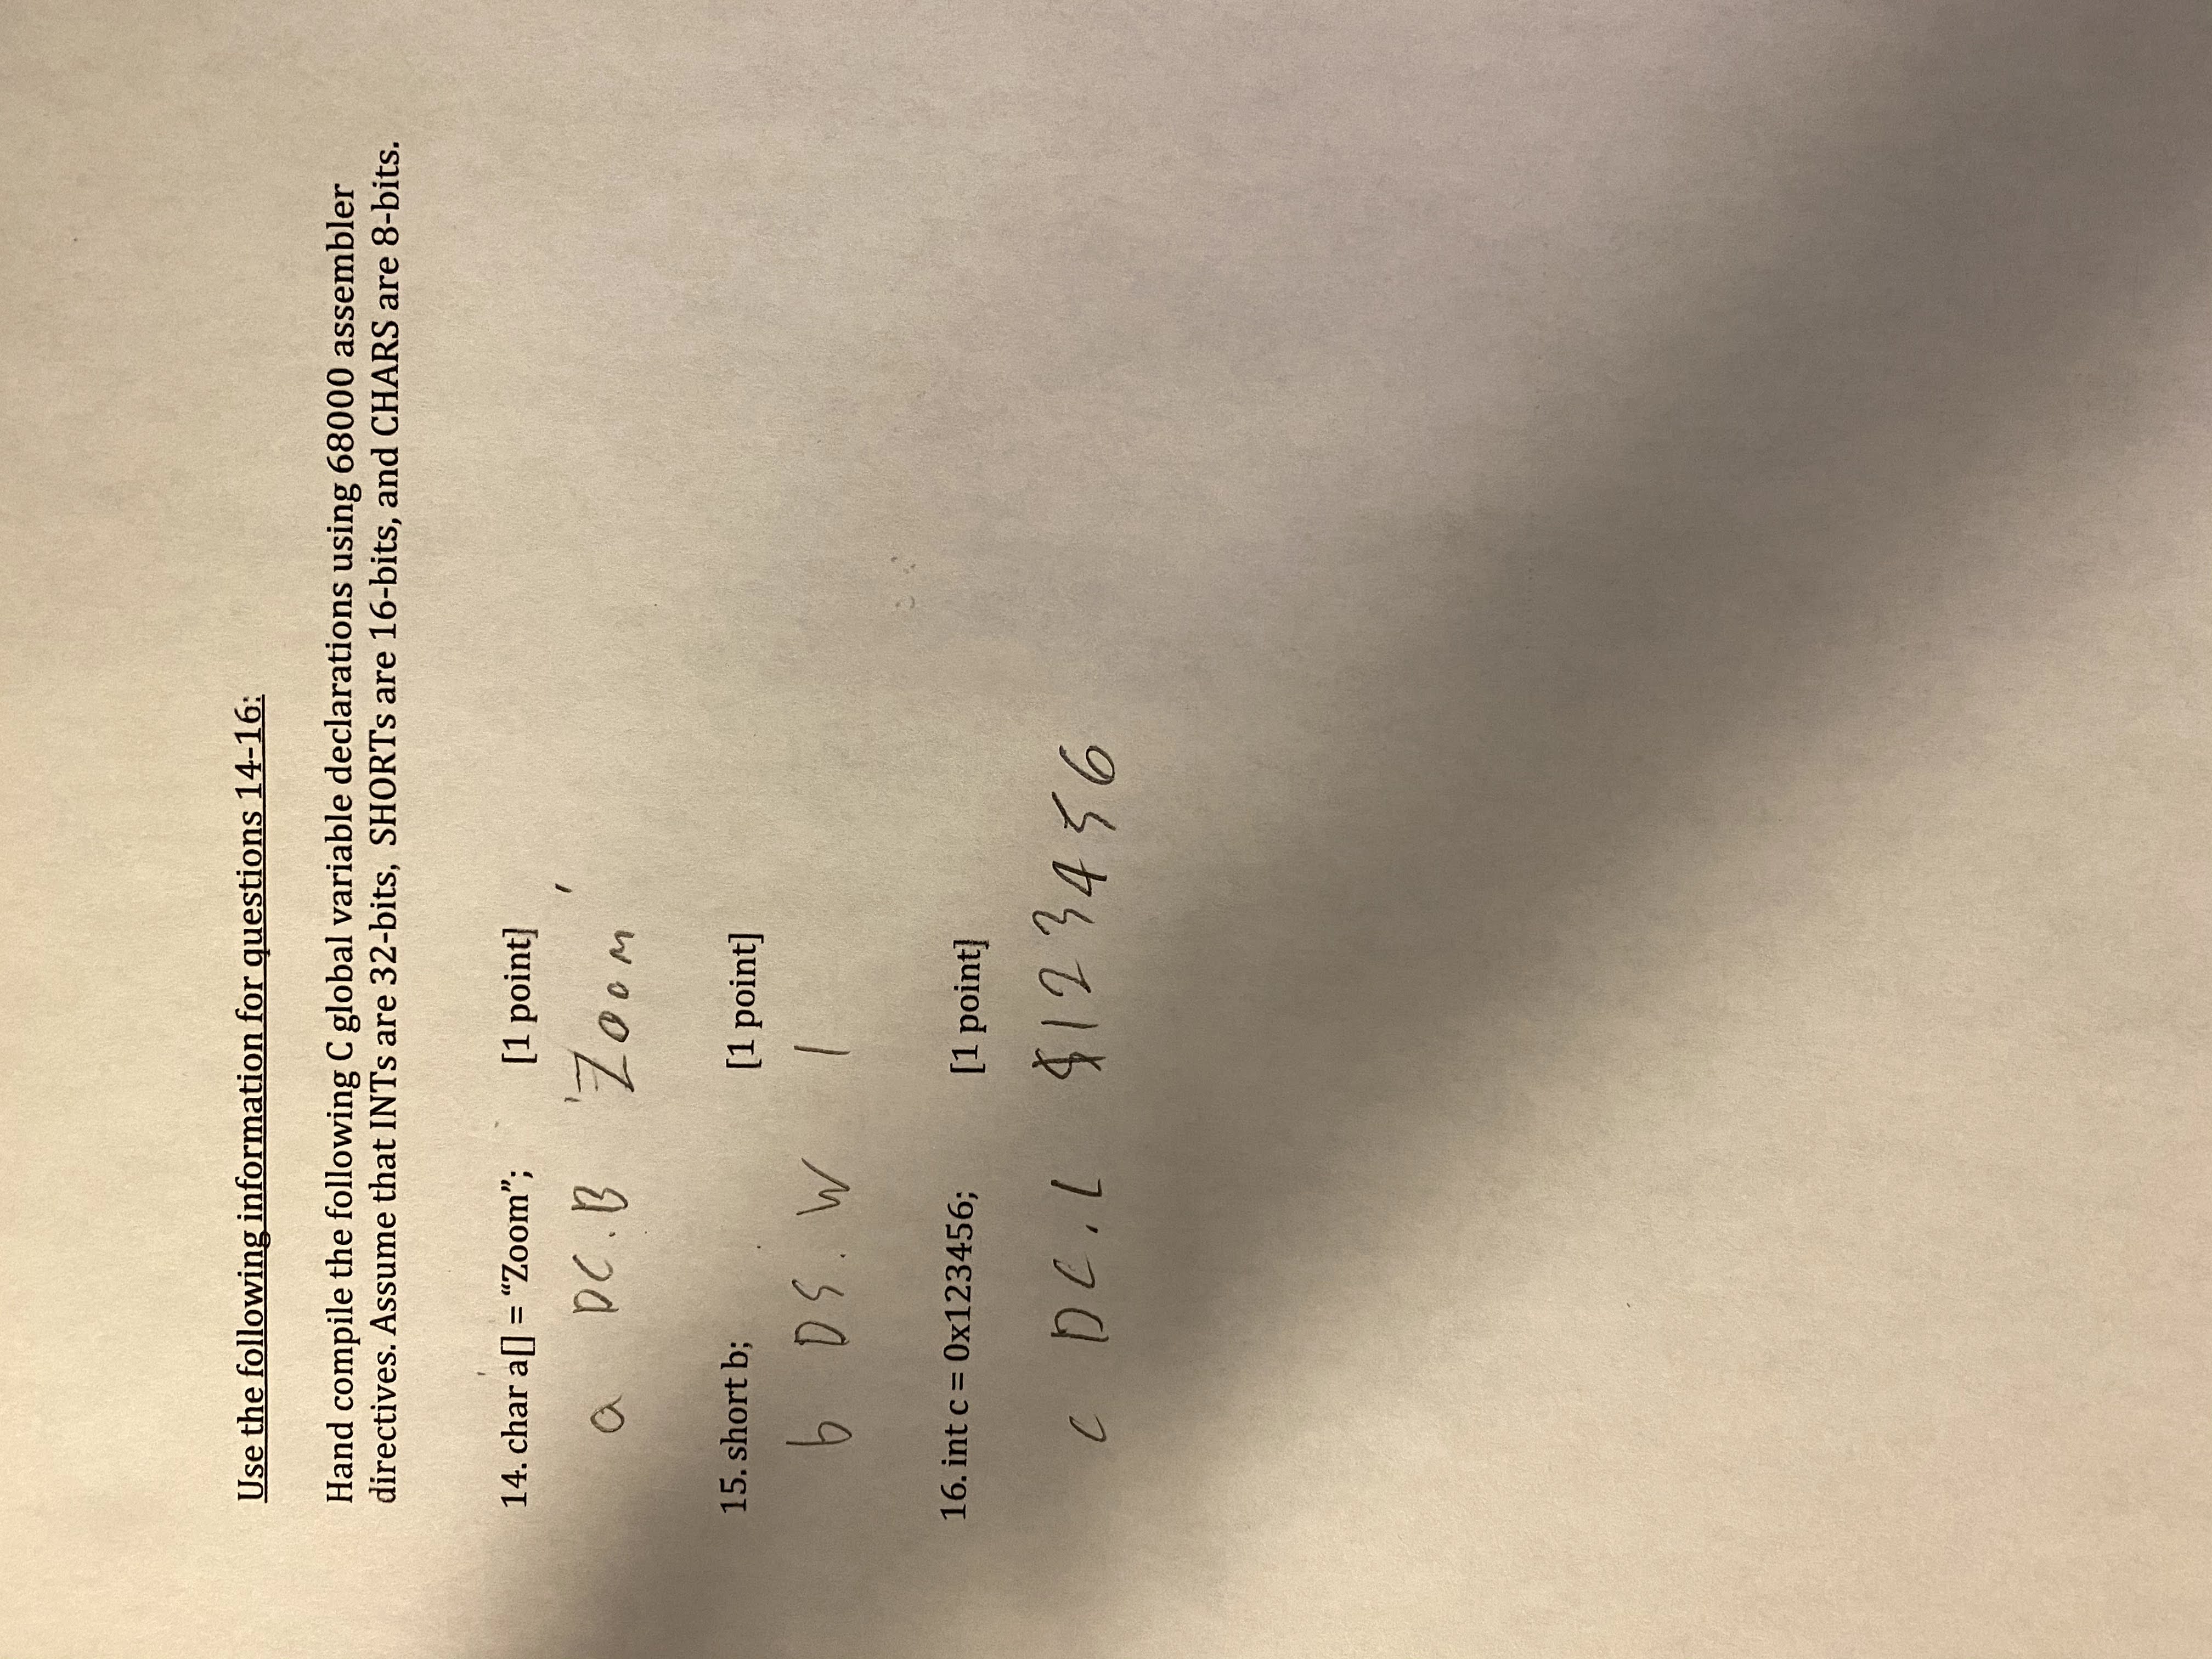 Use the following information for questions 14-16:
Hand compile the following C global variable declarations using 68000 assembler
directives. Assume that INTs are 32-bits, SHORTs are 16-bits, and CHARS are 8-bits.
14. char a[] = “Zoom”; [1 point]
a DC.B 'Zoom'
15. short b; [1 point]
b DS.W 1
16. int c = 0x123456; [1 point]
c DC.L $123456